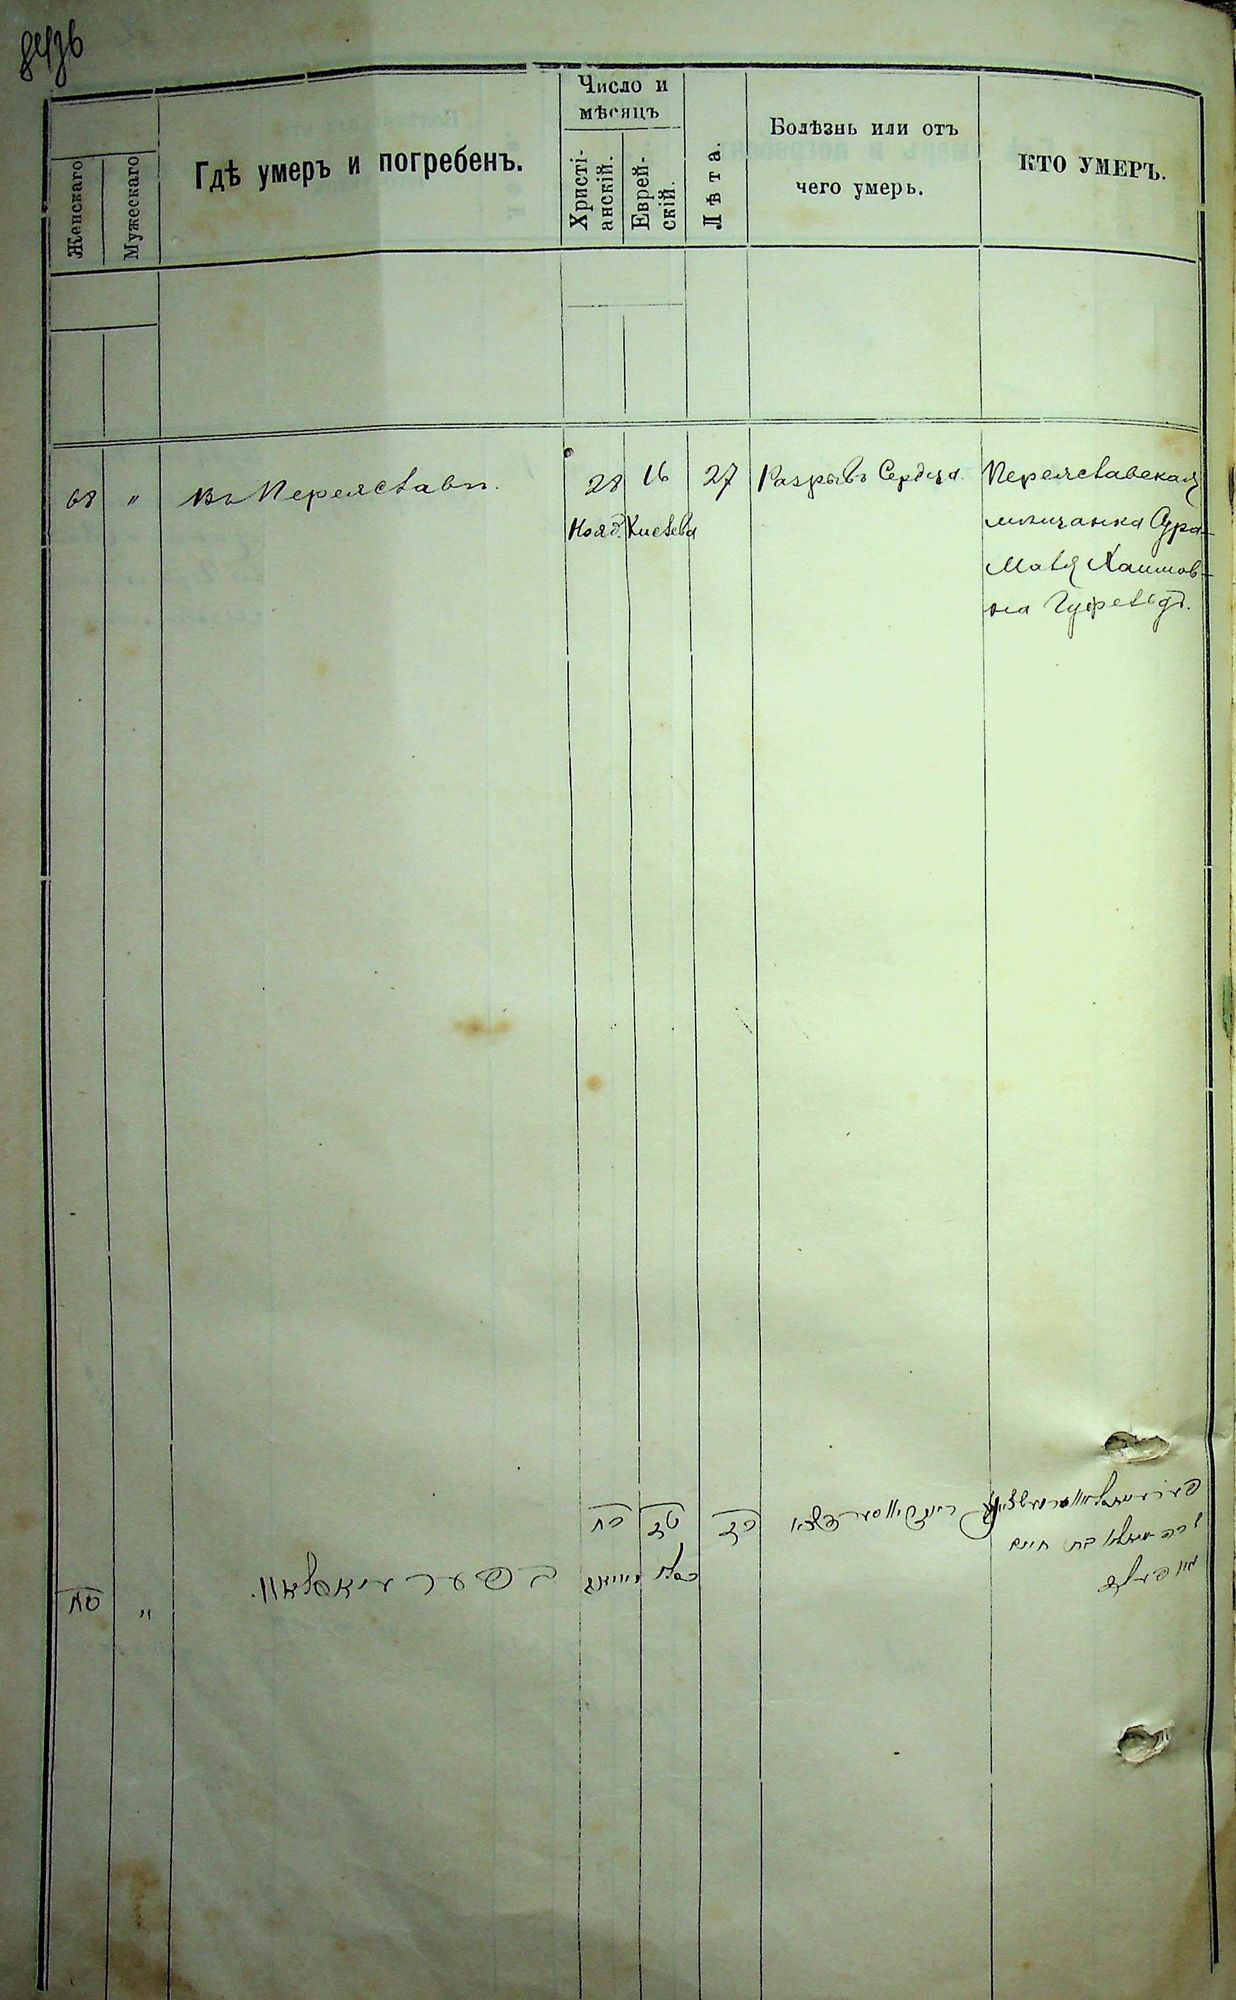 Женскаго
Мужескаго
Гдѣ умеръ и погребенъ.
Число и
мѣсяцъ
Христі-
анскій.
Еврей-
скій.
Лѣта.
Болѣзнь или отъ
чего умеръ.
КТО УМЕРЪ.
68
"
въ Переяславѣ.
28
Нояб.
16
Кислева
27
Разрывъ Сердца.
Переяславская
мѣщанка Сура-
Матя Хаимов-
на Гуфельдъ.
סח
"
כח
טז
כסלו
כז
בת חיים